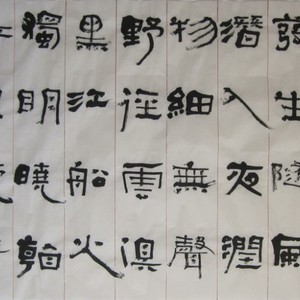 發生隨風
潛入夜潤
物細無聲
野徑雲俱
黑江船火
獨明曉看